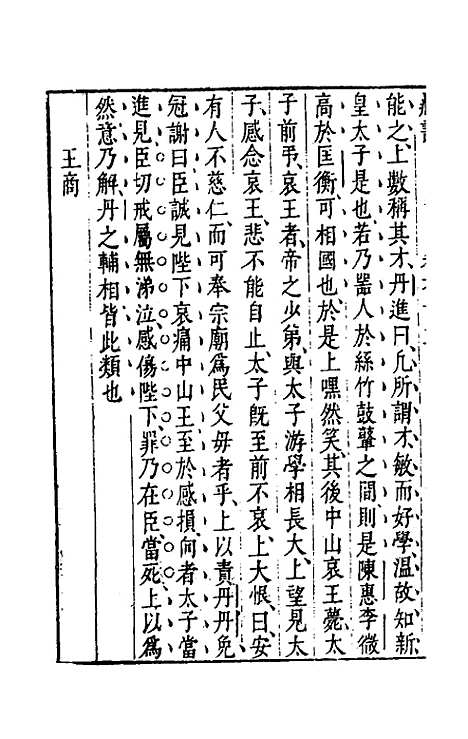 能之上數稱其才丹進曰凡所謂才敏而好學溫故知新
皇太子是也若乃噐人於絲竹鼓鼙之間則是陳惠李微
高於匡衡可相國也於是上嘿然笑其後中山哀王薨太
子前弔哀王者帝之少弟與太子游學相長大上望見太
子感念哀王悲不能自止太子旣至前不哀上大恨曰安
有人不慈仁而可奉宗廟爲民父毋者乎上以責丹丹免
冠謝曰臣誠見陛下哀痛中山王至於感損向者太子當
進見臣切戒屬無涕泣感傷陛下罪乃在臣當死上以爲
然意乃解丹之輔相皆此類也
王商